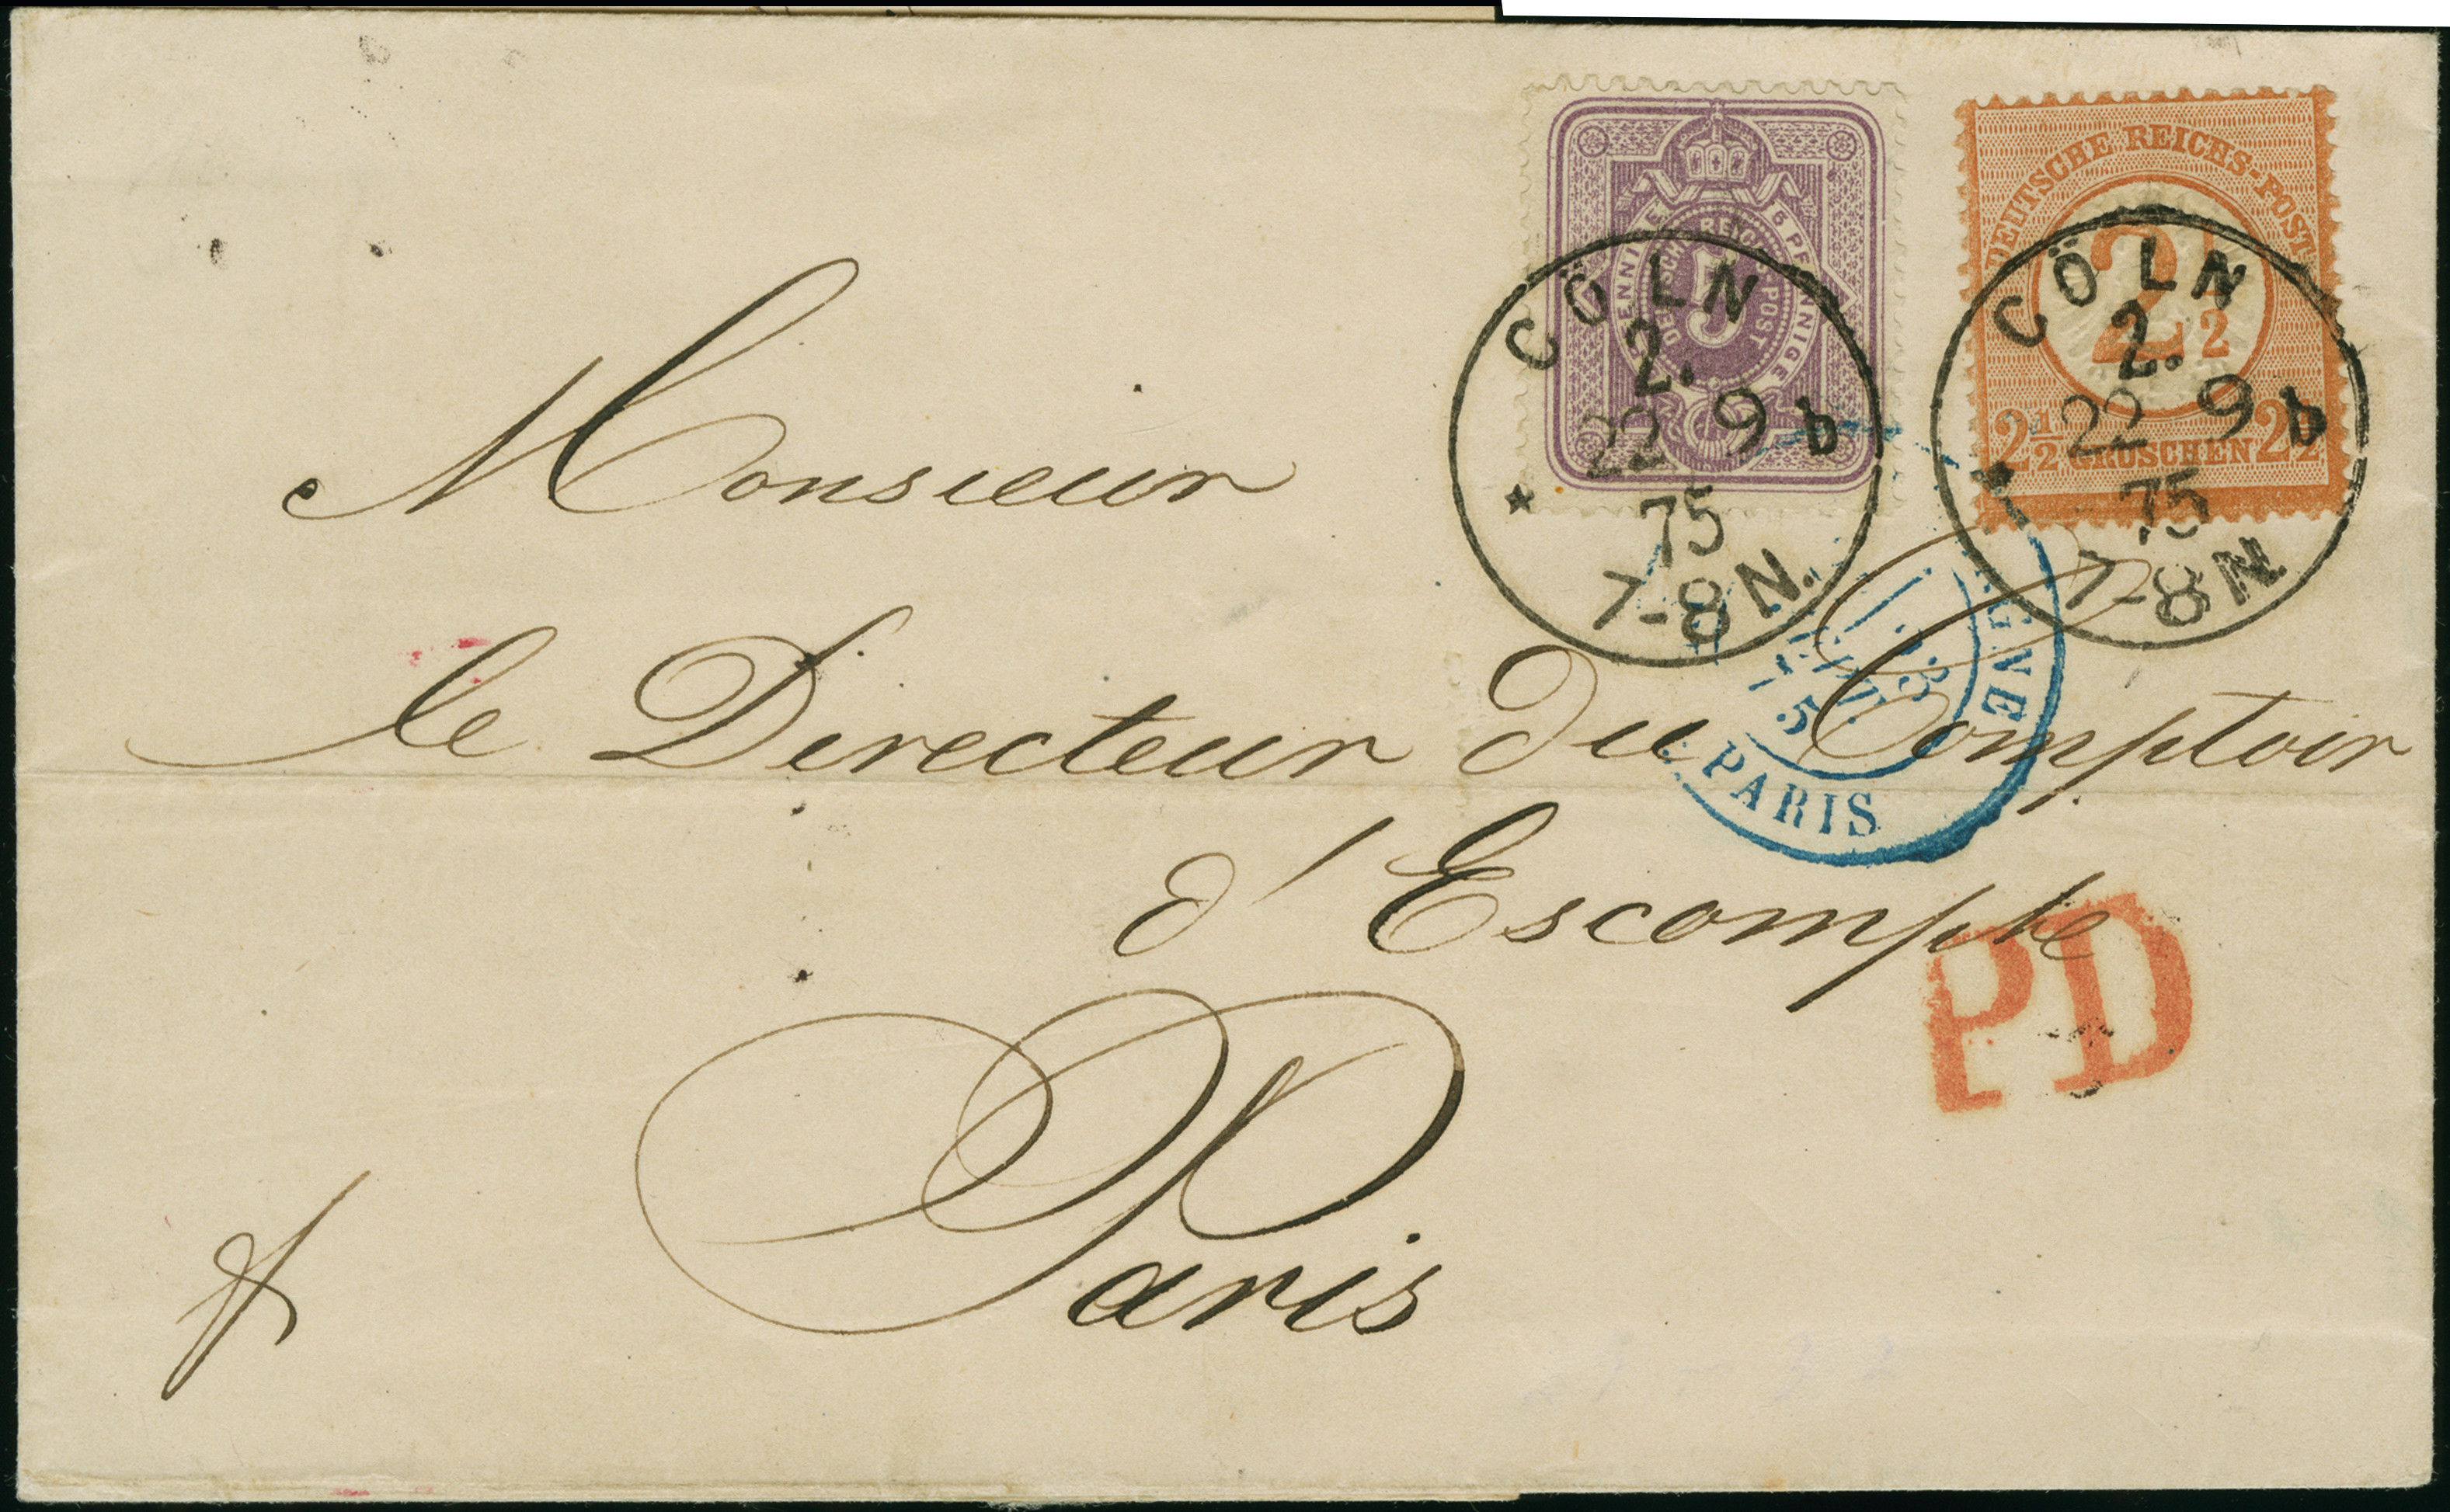 5 PFENNIGE
5 PFENNIGE
DEUTSCHE REICHS-POST
5
DEUTSCHE REICHS-POST
2 1/2
2 1/2 GROSCHEN 2 1/2
CÖLN
2.
22 9 b
75
7-8 N.
CÖLN
2.
22 9 b
75
7-8 N.
Monsieur
le Directeur du Comptoir
d'Escompte
Paris
23
75
PARIS
PD